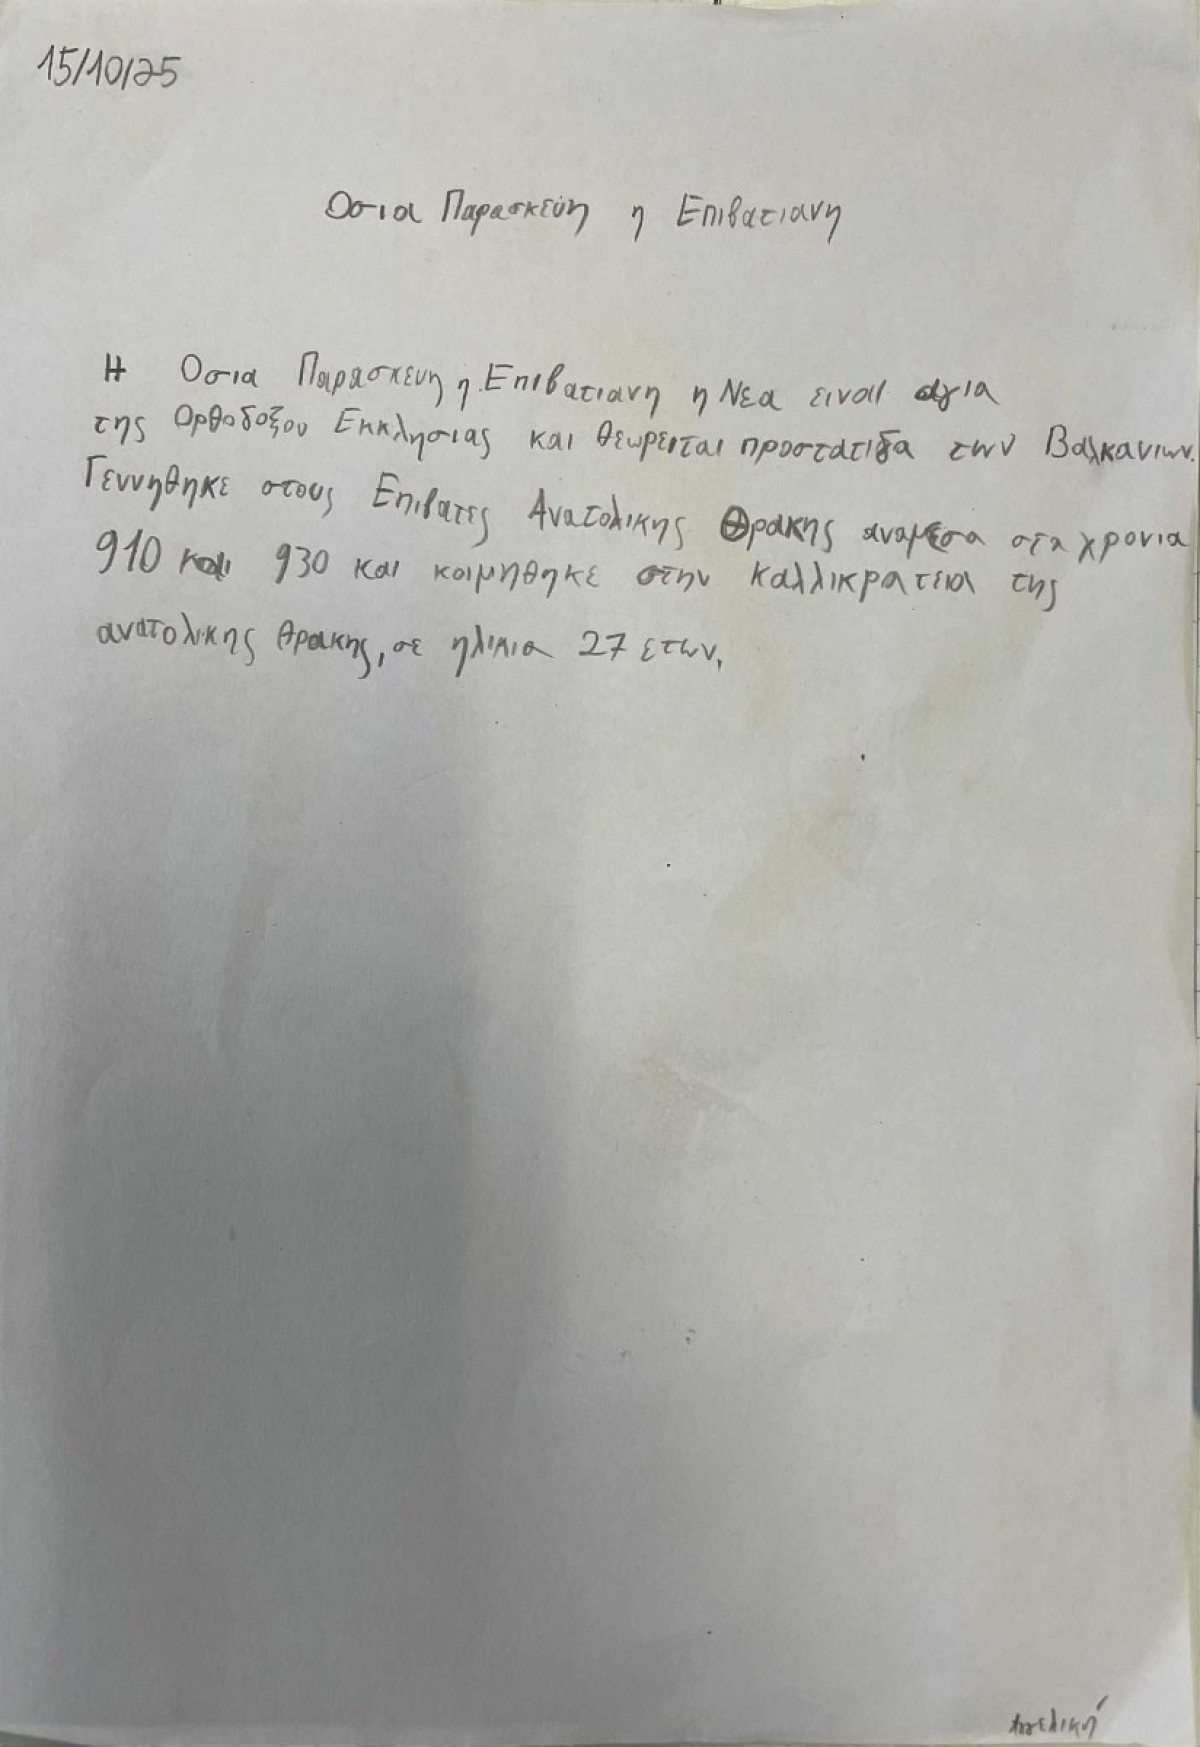 15/10/25
Οσια Παρασκεύη η Επιβατιανη
Η Οσια Παρασκευη η Επιβατιανη η Νεα ειναι αγια
της Ορθοδοξου Εκκλησιας και θεωρειται προστατιδα των Βαλκανιων.
Γεννηθηκε στους Επιβατες Ανατολικης Θρακης αναμεσα στα χρονια
910 και 930 και κοιμηθηκε στην Καλλικρατεια της
ανατολικης θρακης, σε ηλικια 27 ετων.
Αγγελική